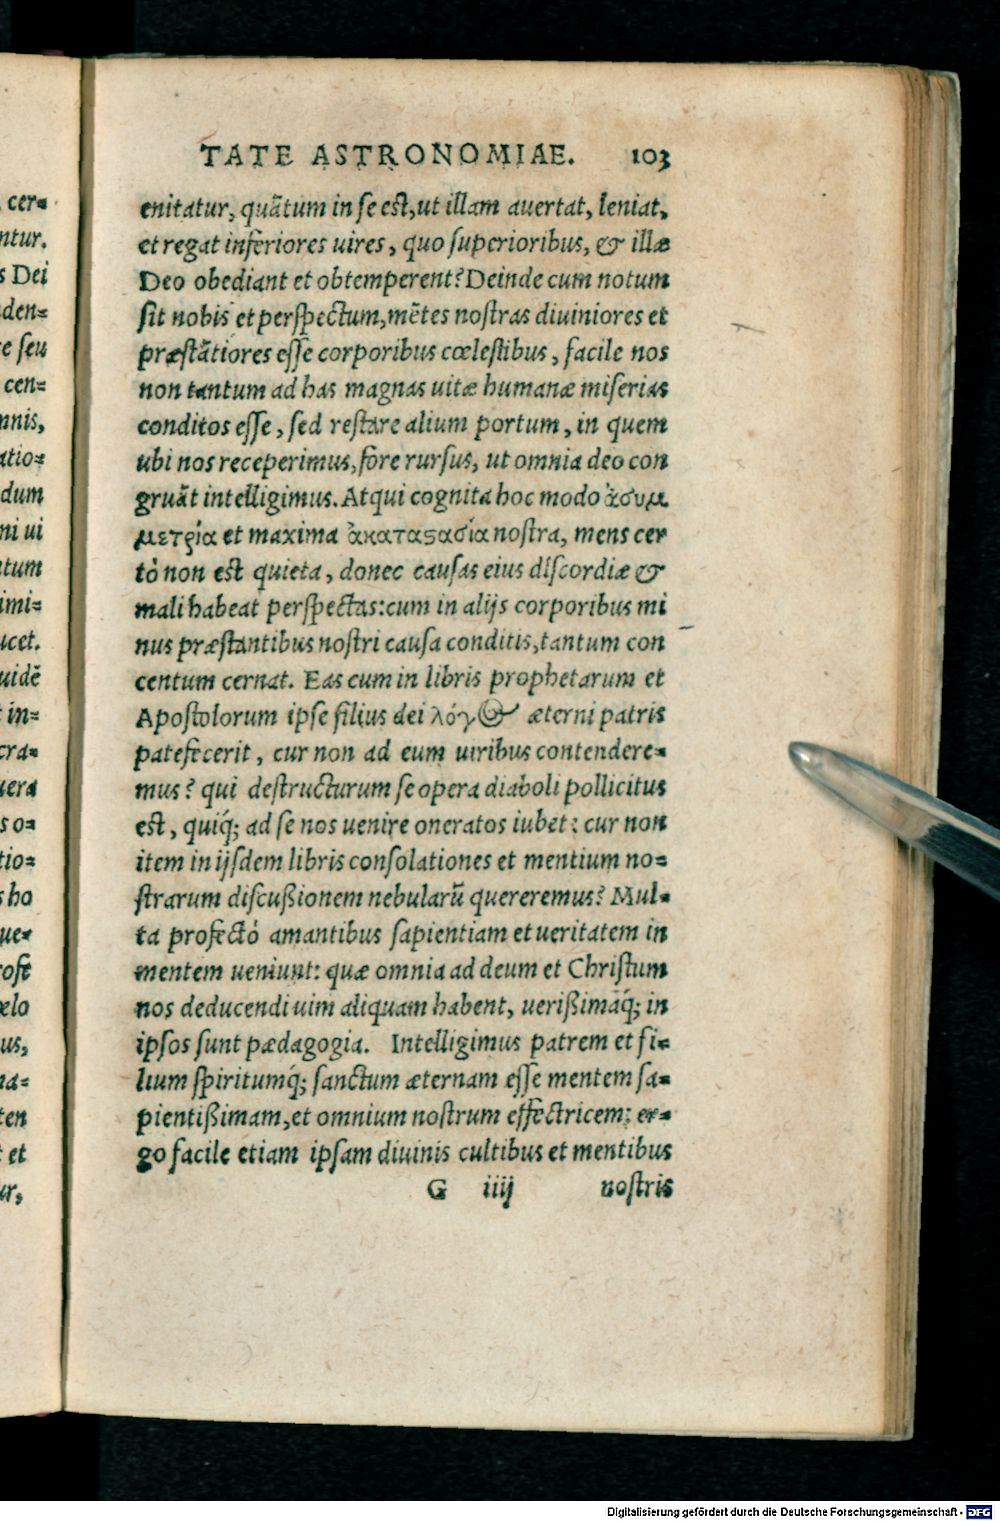 TATE ASTRONOMIAE. 103
enitatur, quãtum in se est, ut illam auertat, leniat,
et regat inferiores uires, quo superioribus, & illæ
Deo obediant et obtemperent? Deinde cum notum
sit nobis et perspectum, mẽtes nostras diuiniores et
præstãtiores esse corporibus cœlestibus, facile nos
non tantum ad has magnas uitæ humanæ miserias
conditos esse, sed restare alium portum, in quem
ubi nos receperimus, fore rursus, ut omnia deo con
gruãt intelligimus. Atqui cognita hoc modo ἀσυμ
μετρία et maxima ἀκαταϛασία nostra, mens cer
tò non est quieta, donec causas eius discordiæ &
mali habeat perspectas: cum in alijs corporibus mi
nus præstantibus nostri causa conditis, tantum con
centum cernat. Eas cum in libris prophetarum et
Apostolorum ipse filius dei λόγος æterni patris
patefecerit, cur non ad eum uiribus contendere=
mus? qui destructurum se opera diaboli pollicitus
est, quiq; ad se nos uenire oneratos iubet: cur non
item in ijsdem libris consolationes et mentium no=
strarum discußionem nebularũ quereremus? Mul=
ta profectò amantibus sapientiam et ueritatem in
mentem ueniunt: quæ omnia ad deum et Christum
nos deducendi uim aliquam habent, uerißimaq́; in
ipsos sunt pædagogia. Intelligimus patrem et fi=
lium spiritumq́; sanctum æternam esse mentem sa=
pientißimam, et omnium nostrum effectricem: er=
go facile etiam ipsam diuinis cultibus et mentibus
G iiij nostris
cer=
ntur.
s Dei
den=
e seu
cen=
mnis,
atio=
dum
ni ui
tum
imi=
ucet.
uidẽ
in=
cra=
uera
s o=
tio=
s ho
ue=
ofe
ælo
us,
na=
ten
et
ur,
Digitalisierung gefördert durch die Deutsche Forschungsgemeinschaft - DFG